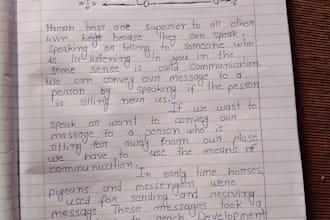 Human beigs are superior to all other
livin beigs because they can speak,
speaking or telling to someone who
is listening to you in the
some sense is called communication
we can convey our message to a
person by speaking if the person
is sitting near us.
If we wast to
speak or want to convey our
massage to a person who is
sitting far away from our plase
we have to use the means of
communication.
In early time horses,
pigeons and messengers were
used for sending and reciving
messags. These messages took a
Development